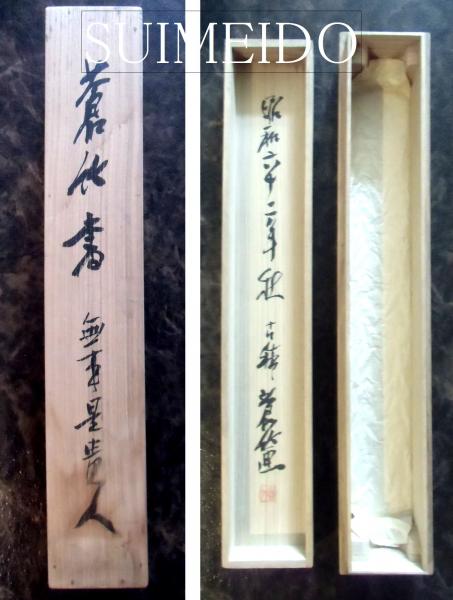 SUIMEIDO
蒼竹書 無事是貴人
昭和六十二年秋 古稀 蒼竹